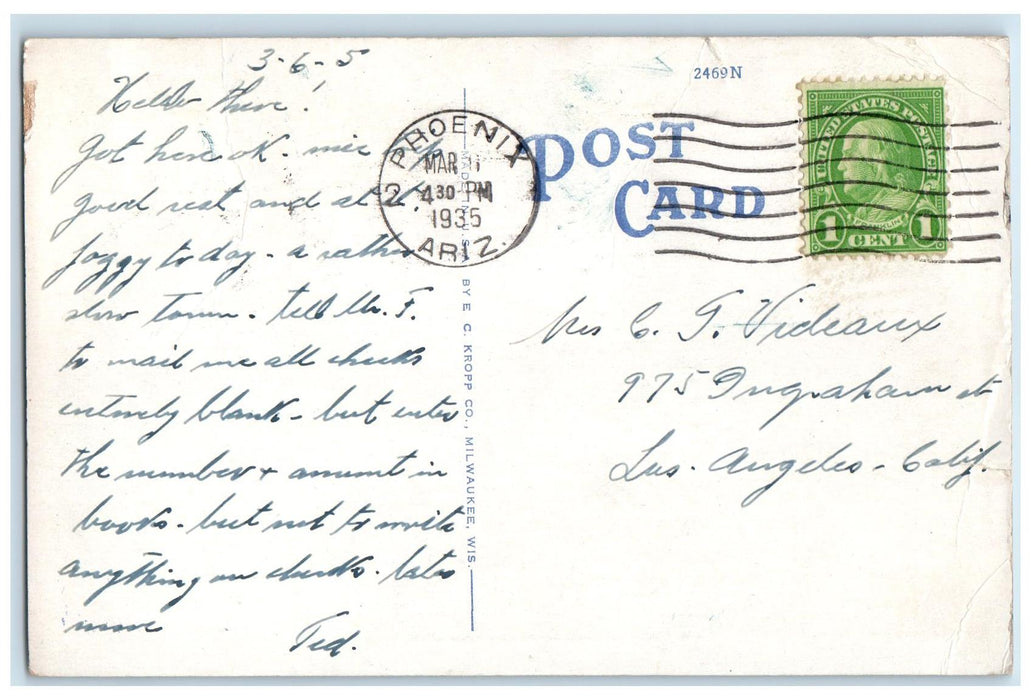 3-6-5
Hello there!
Got here ok. nice
good rest and at it,
foggy today - a rather
slow town. tell Mr. F.
to mail me all checks
entirely blank - but enter
the number + amount in
books. but not to write
anything on checks. later
more
Ted.
MADE IN U.S.A. BY E. C. KROPP CO., MILWAUKEE, WIS.
PHOENIX
MAR 6
4 30 PM
1935
2
ARIZ.
2469N
POST
CARD
UNITED STATES POSTAGE
FRANKLIN
1 CENT 1
Mrs C. T. Videaux
975 Ingraham st
Los. Angeles - Calif.